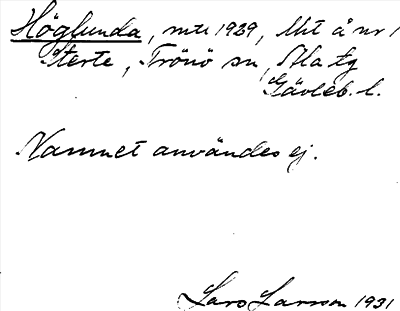 Höglunda, mtl 1939, Utj å nr 1
Sterte, Trönö sn, Ala tg
Gävleb. l.
Namnet användes ej.
Lars Larsson 1931